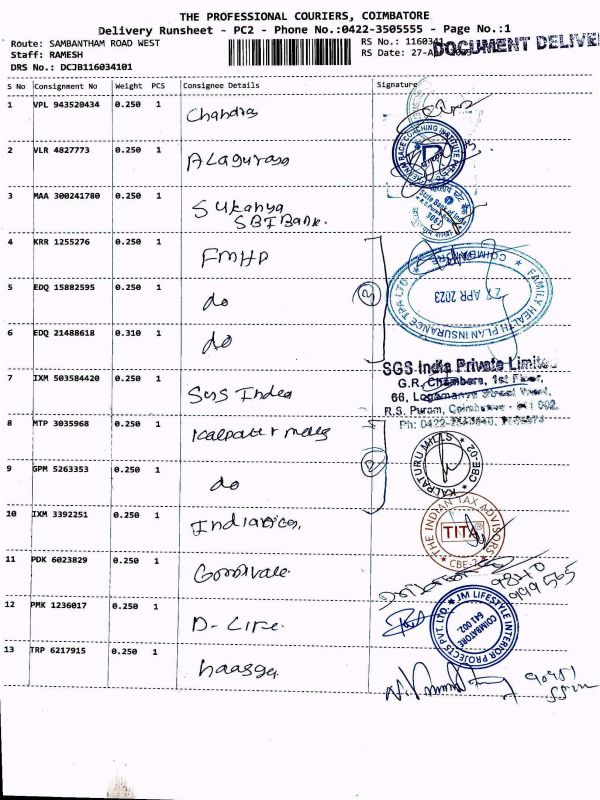 THE PROFESSIONAL COURIERS, COIMBATORE
Delivery Runsheet - PC2 - Phone No.:0422-3505555 - Page No.:1
Route: SAMBANTHAM ROAD WEST
RS No.: 1160341
DOCUMENT DELIVE
Staff: RAMESH
RS Date: 27-A
DRS No.: DCJB116034101
S No Consignment No Weight PCS Consignee Details Signature
1 VPL 943520434 0.250 1 Chandra
2 VLR 4827773 0.250 1
3 MAA 300241780 0.250 1 Sukanya
SBI Bank.
State Bank of India
4 KRR 1255276 0.250 1 FMHP
5 EDQ 15882595 0.250 1 do
FAMILY HEALTH PLAN INSURANCE TPA LTD. COIMBATORE
APR 2023
6 EDQ 21488618 0.310 1 do
7 IXM 503584420 0.250 1 SGS India
SGS India Private Limite
G.R. Chambers, 1st Floor,
66,
R.S. Puram,
8 MTP 3035968 0.250 1
KALPATURU MILLS CBE-02
9 GPM 5263353 0.250 1 do
10 IXM 3392251 0.250 1
THE INDIAN TAX ADVISORS
TITA
CBE-
11 PDK 6023829 0.250 1
9840
999565
12 PMK 1236017 0.250 1 D-Life.
JM LIFESTYLE INTERIOR PROJECTS PVT. LTD.
COIMBATORE
641 002.
13 TRP 6217915 0.250 1